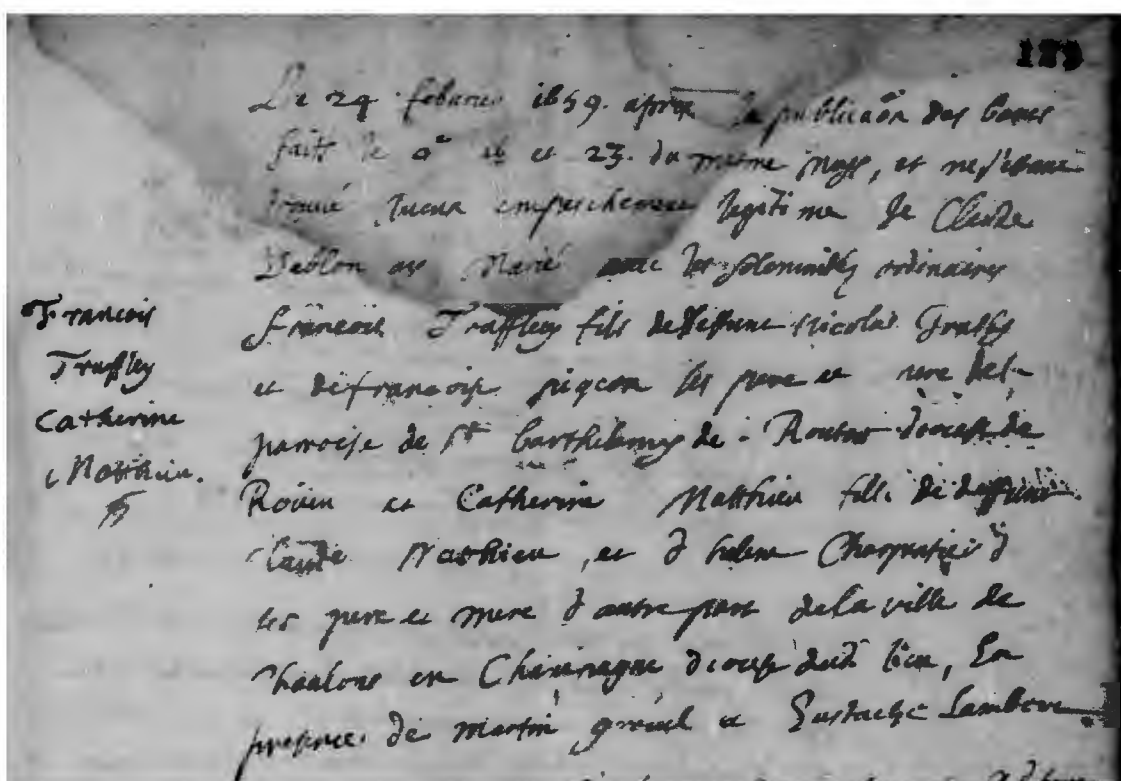 179
Le 24 febvrier 1659. apres la publicaon des bans
faits le 9e 16 et 23. du mesme moys, et ne s'estant
trouvé aucun empeschement legitime Je Claude
Dablon ay Marié avec les solemnitez ordinaires
François Truffley fils de deffunct Nicolas Truffley
et de françoise pigeon ses pere et mere de la
parroisse de St barthelemy de Diocese de
Rouen et Catherine Matthieu fille de deffunct
Claude Mathieu, et d' helene Charpentier
ses pere et mere d'autre part de la ville de
Chaalons en Champagne diocese dudt lieu, En
presence de Martin grouvel et Eustache Lambert
François
Truffley
Catherine
Matthieu.